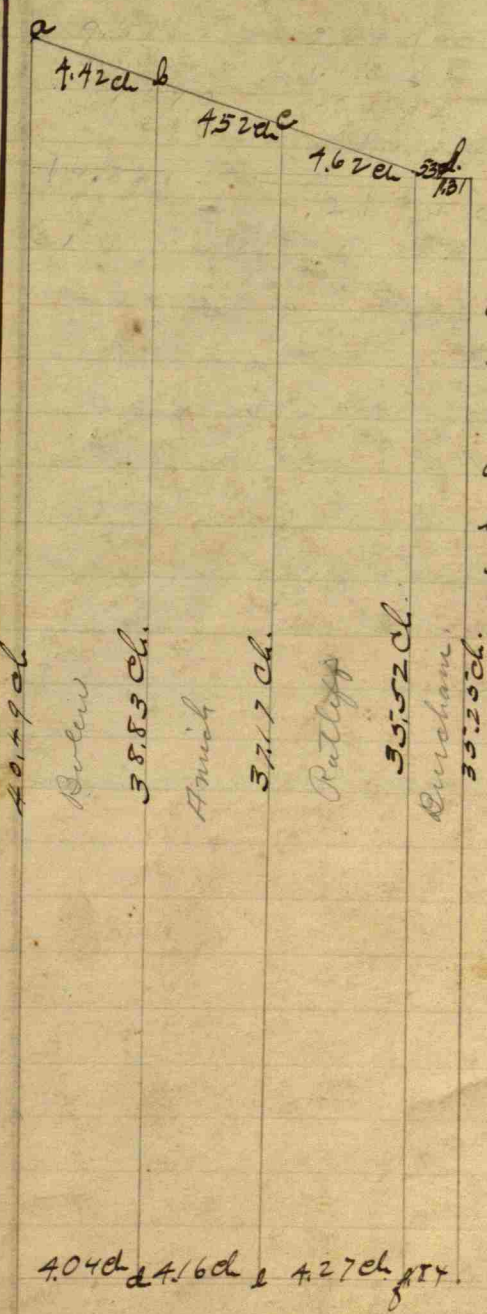 a
4.42 ch b
4.52 ch c
4.62 ch .53 d.
1.31
40.49 ch
38.83 Ch.
Amick
37.17 Ch.
Ratliff
35.52 Ch.
Burcham.
35.25 Ch.
4.04 ch d 4.16 ch e 4.27 ch f